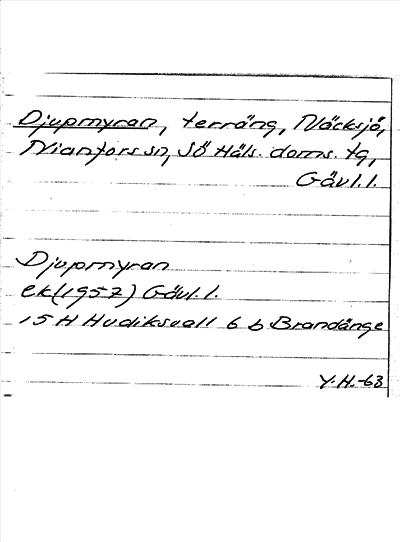 Djupmyran, terräng, Näcksjö,
Nianfors sn, Sö Häls. doms. tg,
Gävl.l.
Djupmyran
ek(1957) Gävl.l.
15 H Hudiksvall 6 b Brandänge
Y.H.-63